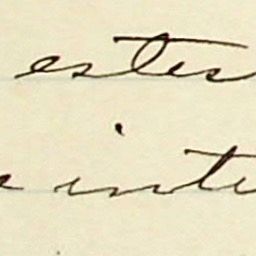 estes
inte